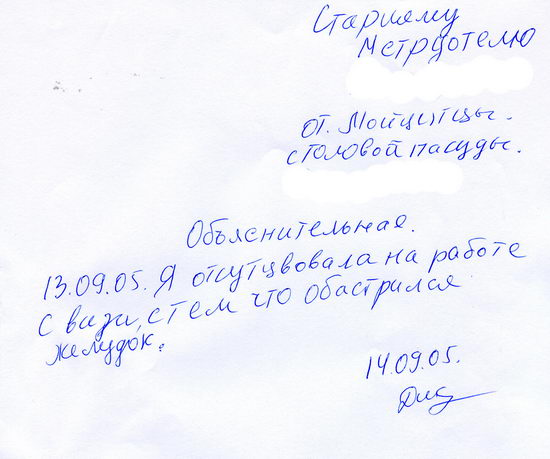 Старшему
Метрдотелю
от. Мойщитцы.
столовой пасуды.
Объяснительная.
13.09.05. Я отсутцвовала на работе
с вязи, с тем что обастрился
желудок.
14.09.05.